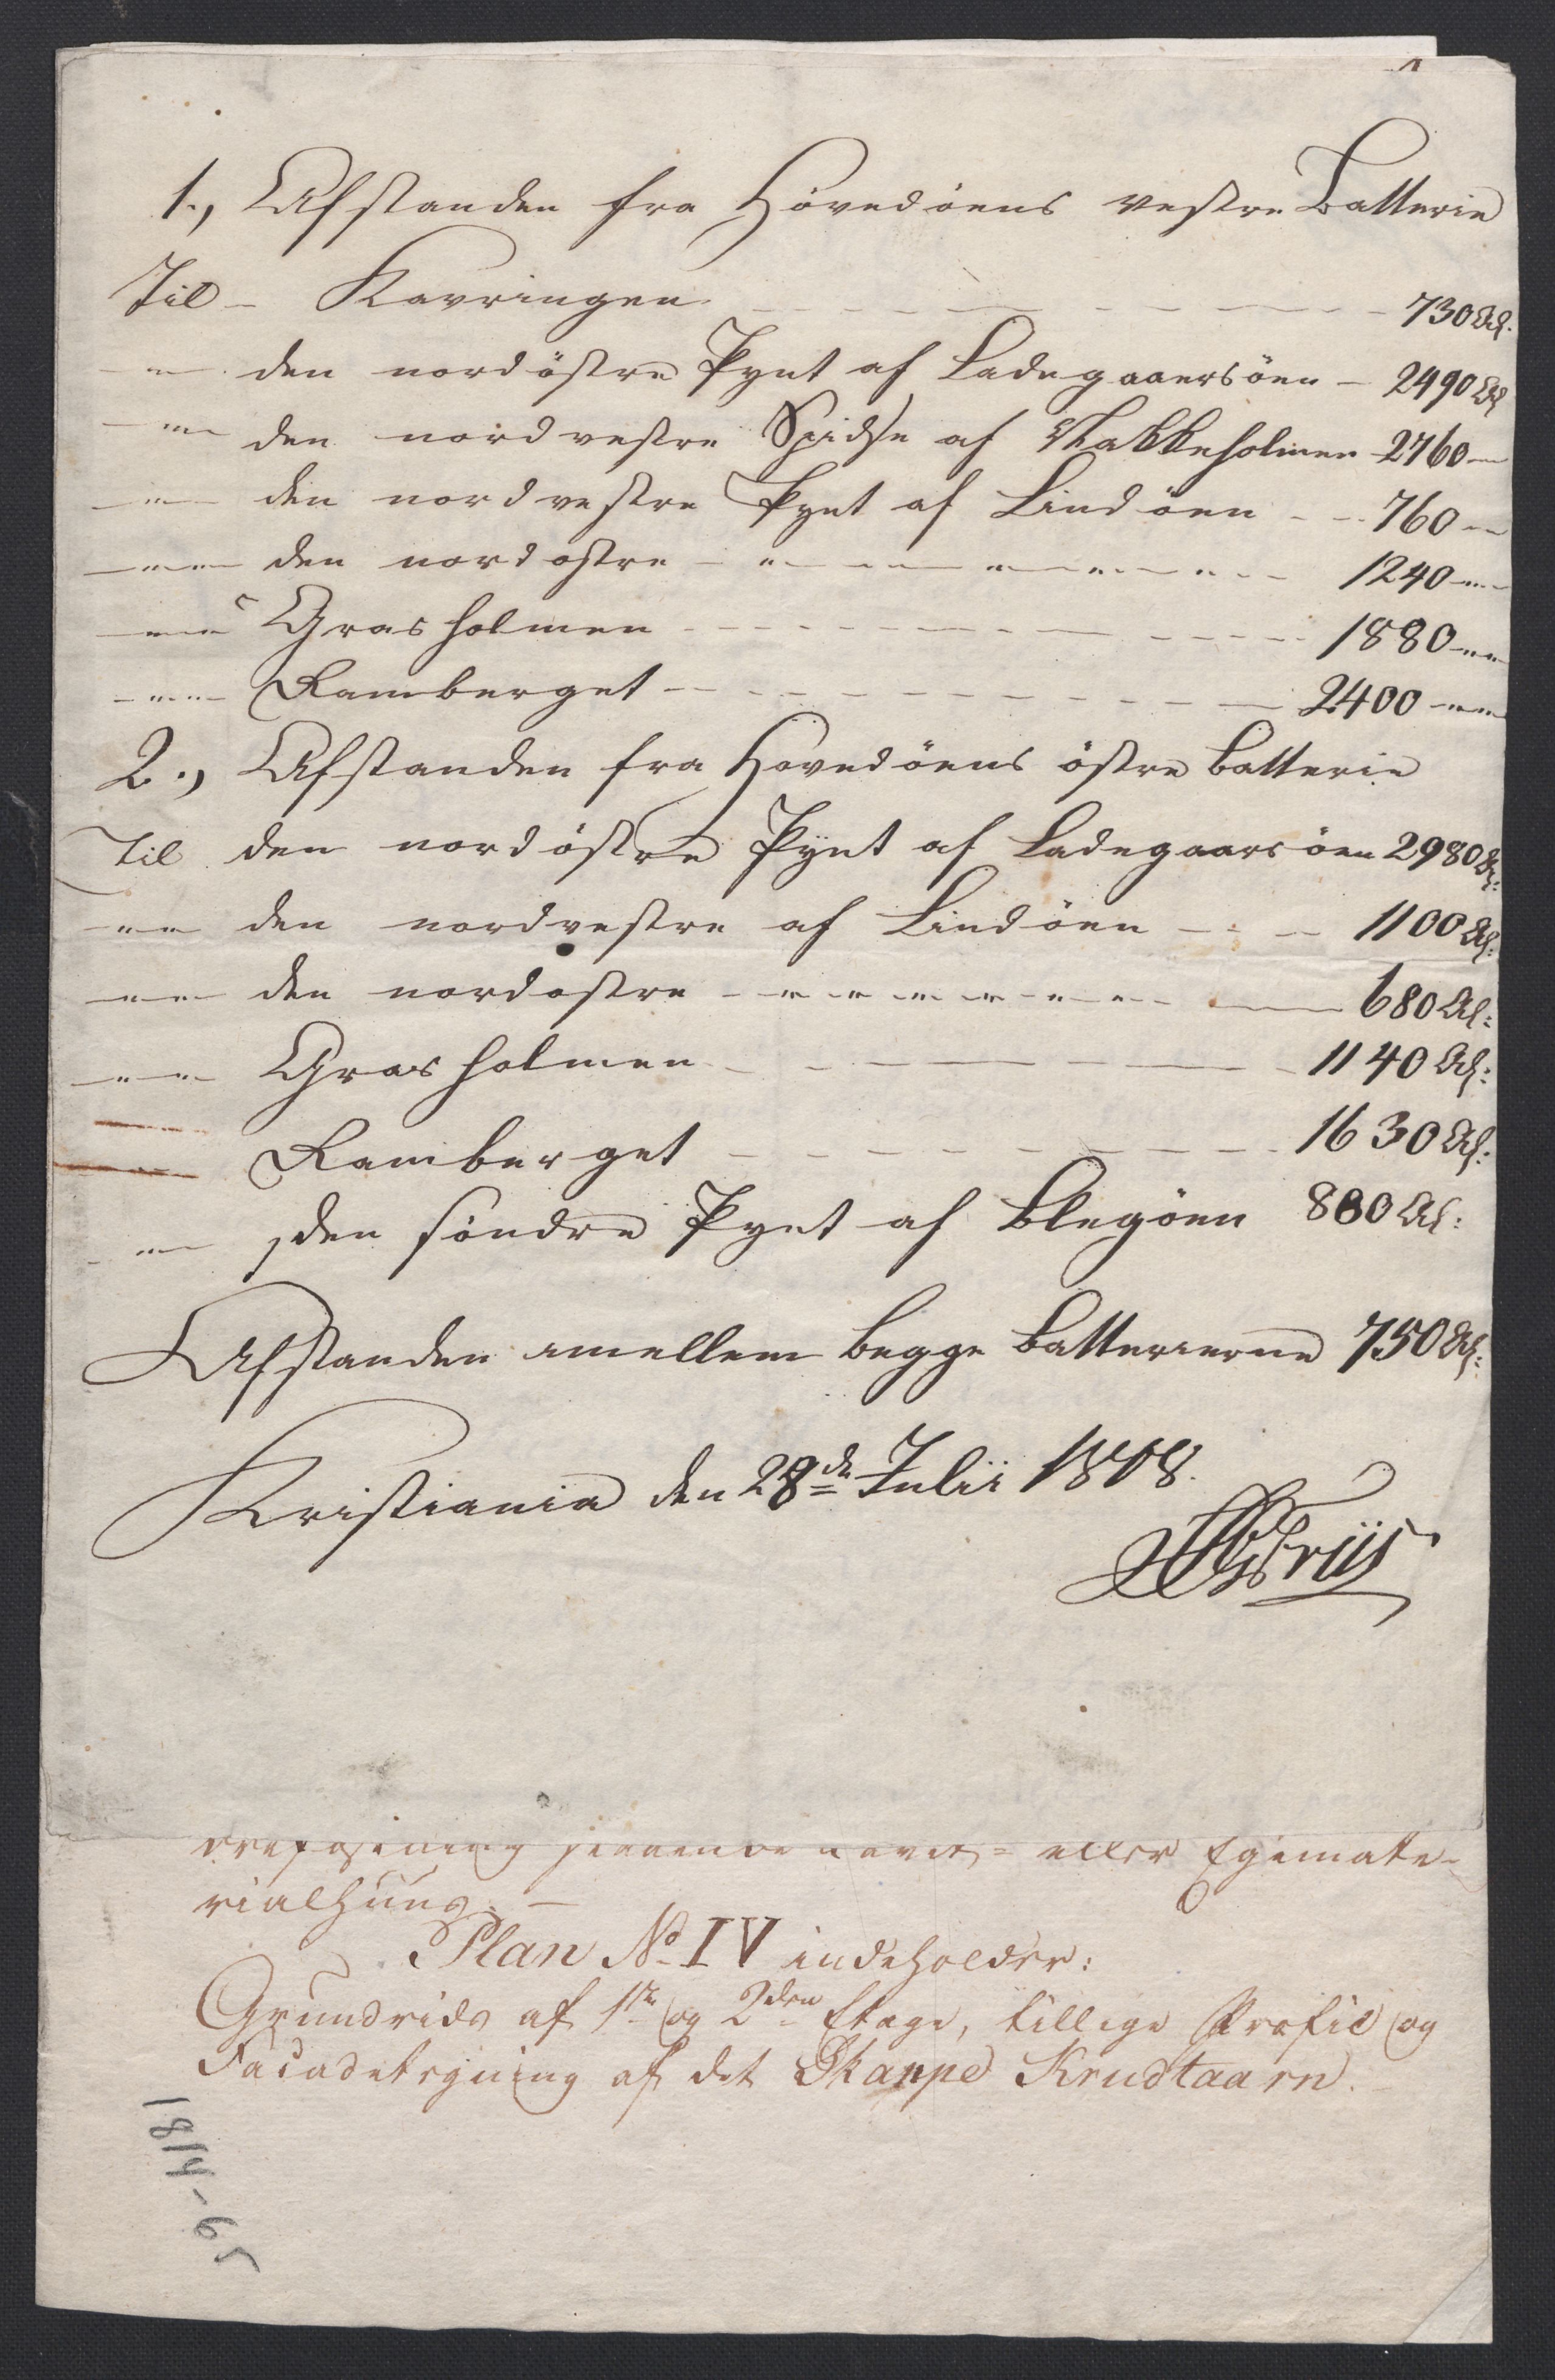 1., Afstanden fra Hovedöens vestre Batterie
Til - Kavringen - - - - - 730 Al.
— " — den nordöstre Pynt af Ladegaarsöen — 2490 Al
— " — den nordvestre Spidse af Nakkeholmen 2760 —
— " — den nordvestre Pynt af Lindöen - - 760 —
— " — den nordostre — " — " — " — 1240 — " —
— " — Grasholmen - - - - - 1880 — " —
— " — Ramberget - - - - - 2400 — " —
2., Afstanden fra Hovedöens östre Batterie
Til den nordöstre Pynt af Ladegaarsöen 2980 Al:
— " — den nordvestre af Lindöen - - - 1100 Al:
— " — den nordostre — " — " — " — 680 Al:
— " — Grasholmen - - - - - 1140 Al:
Ramberget - - - - - 1630 Al:
— " — den söndre Pynt af Blegöen 880 Al:
Afstanden imellem begge Batterierne 750 Al:
Kristiania den 28de Julii 1808.
Friis
eller Egemate-
rialhuus. —
Plan No IV indeholder:
Grundrids af 1ste og 2den Etage, tillige Profil og
Facadetegning af det Skarpe Krudtaarn.
1814-65